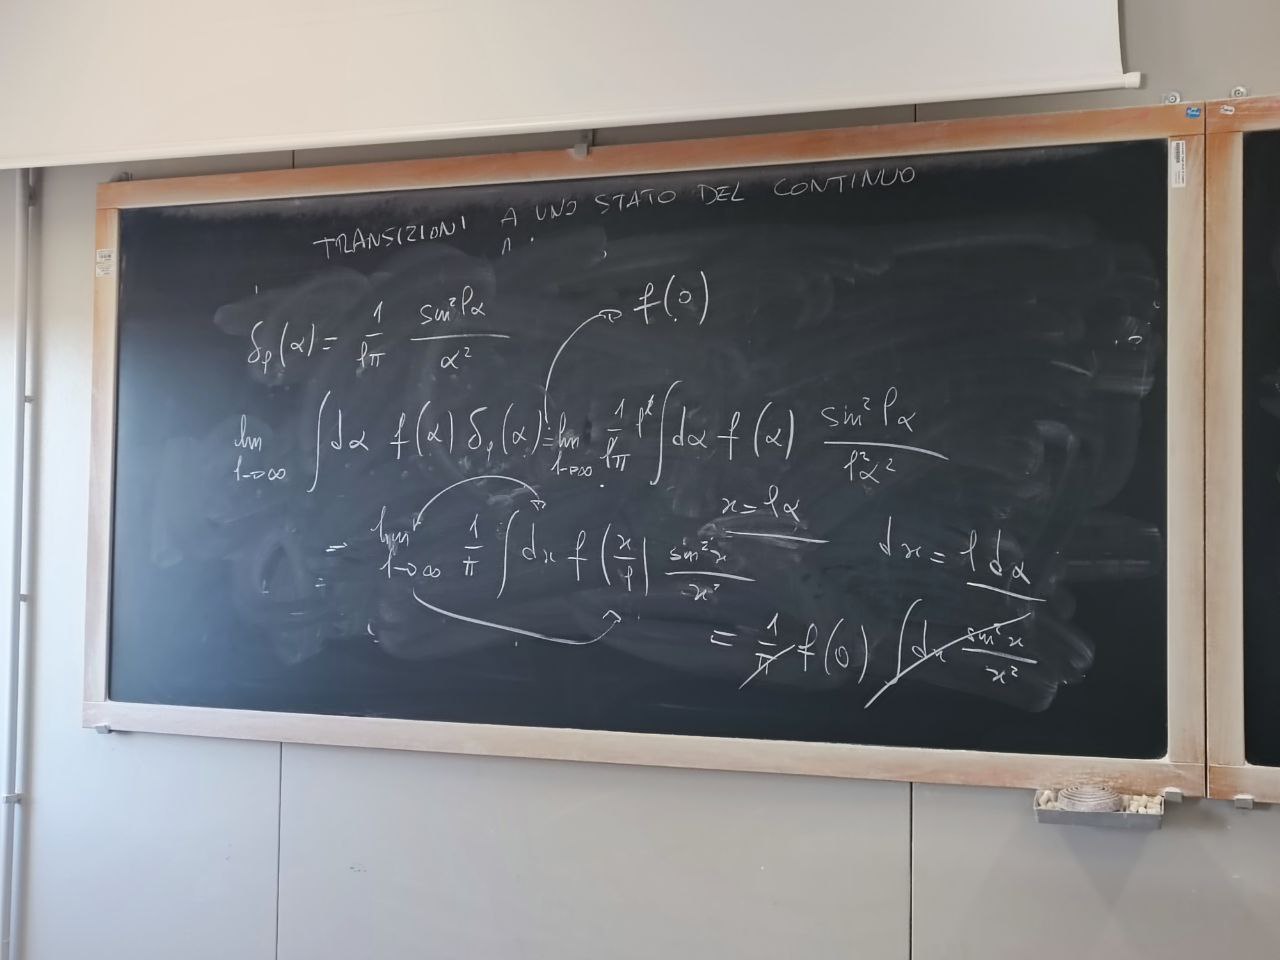 TRANSIZIONI A UNO STATO DEL CONTINUO
δ_ℓ(α) = 1/ℓπ sin²ℓα/α²
f(0)
lim ℓ→∞ ∫dα f(α) δ_ℓ(α) = lim ℓ→∞ 1/ℓπ ℓ² ∫dα f(α) sin²ℓα/ℓ²α²
x = ℓα dx = ℓdα
= lim ℓ→∞ 1/π ∫dx f(x/ℓ) sin²x/x²
= 1/π f(0) ∫dx sin²x/x²